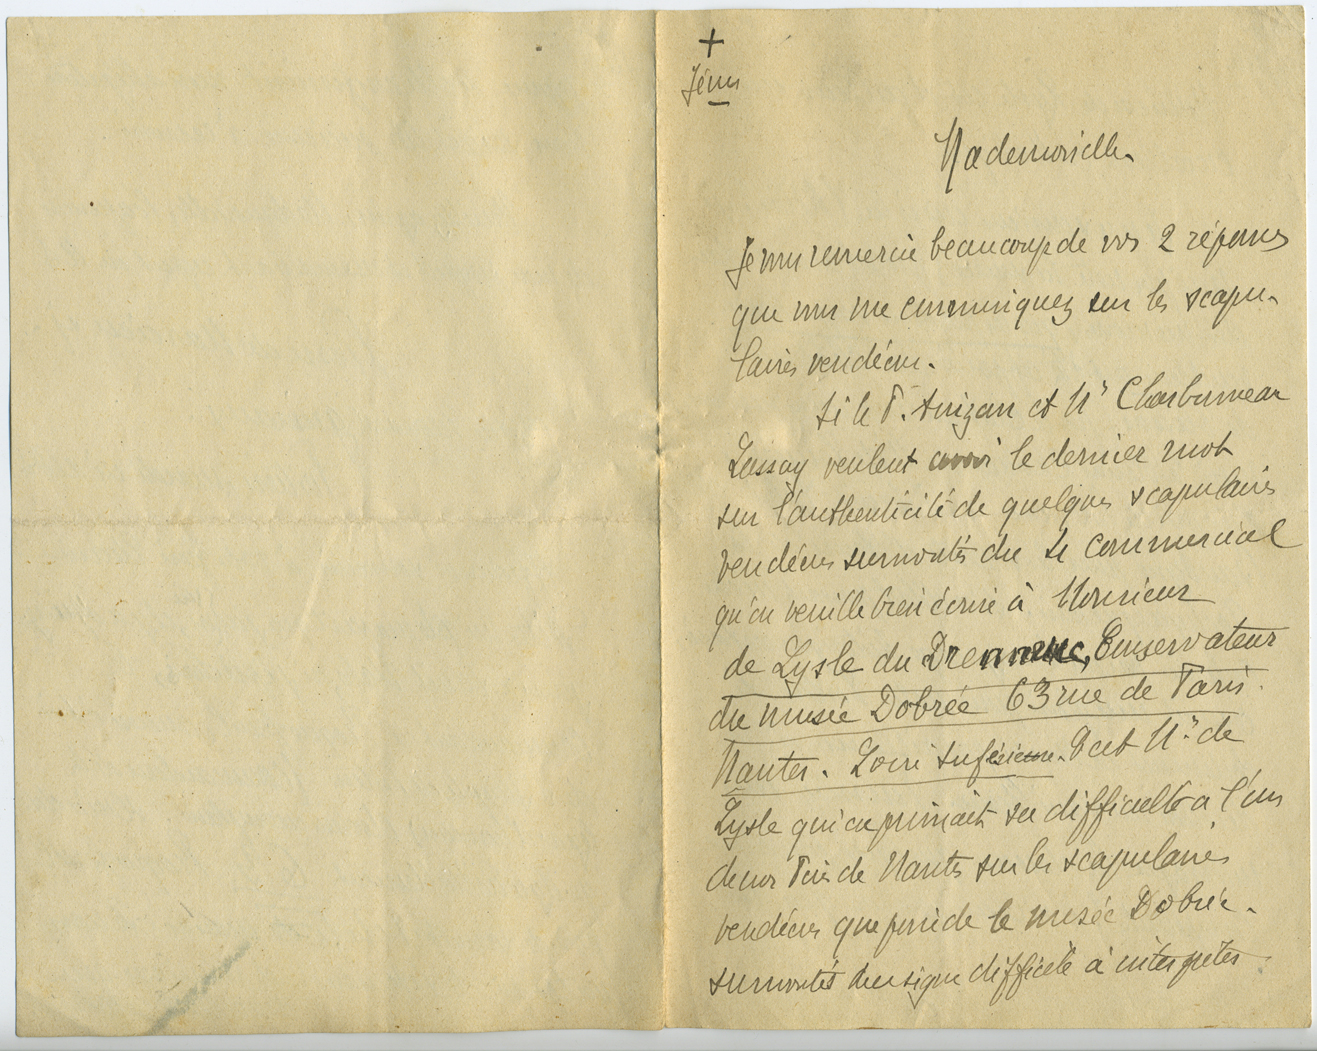 +
Jésus
Mademoiselle.
Je vous remercie beaucoup de vos 2 réponses
que vous me communiquez sur les scapu-
laires vendéens.
Si le P. Anizan et Mr Charbonneau
Lassay veulent avoir le dernier mot
sur l'authenticité de quelques scapulaires
vendéens surmontés du 4 commercial
qu'on veuille bien écrire à Monsieur
de Lysle du Dreneuc, Conservateur
du musée Dobrée 63 rue de Paris.
Nantes. Loire Inférieure. C'est Mr de
Lysle qui exprimait sa difficulté à l'un
de nos Pères de Nantes sur les scapulaires
vendéens que possède le musée Dobrée.
surmontés du signe difficile à interpréter